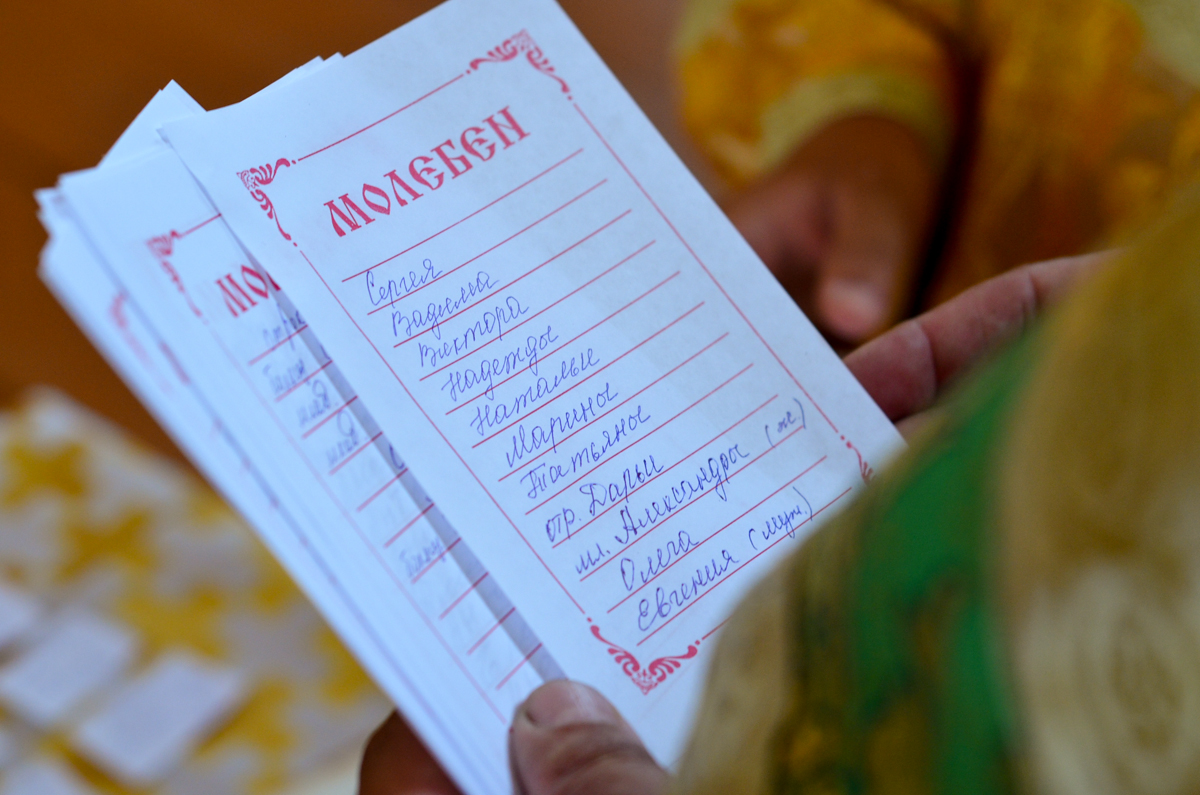 МОЛЕБЕН
Сергея
Вадима
Виктора
Надежды
Натальи
Марины
Татьяны
отр. Дарьи
мл. Александры (ж)
Олега
Евгения (муж.)
МО